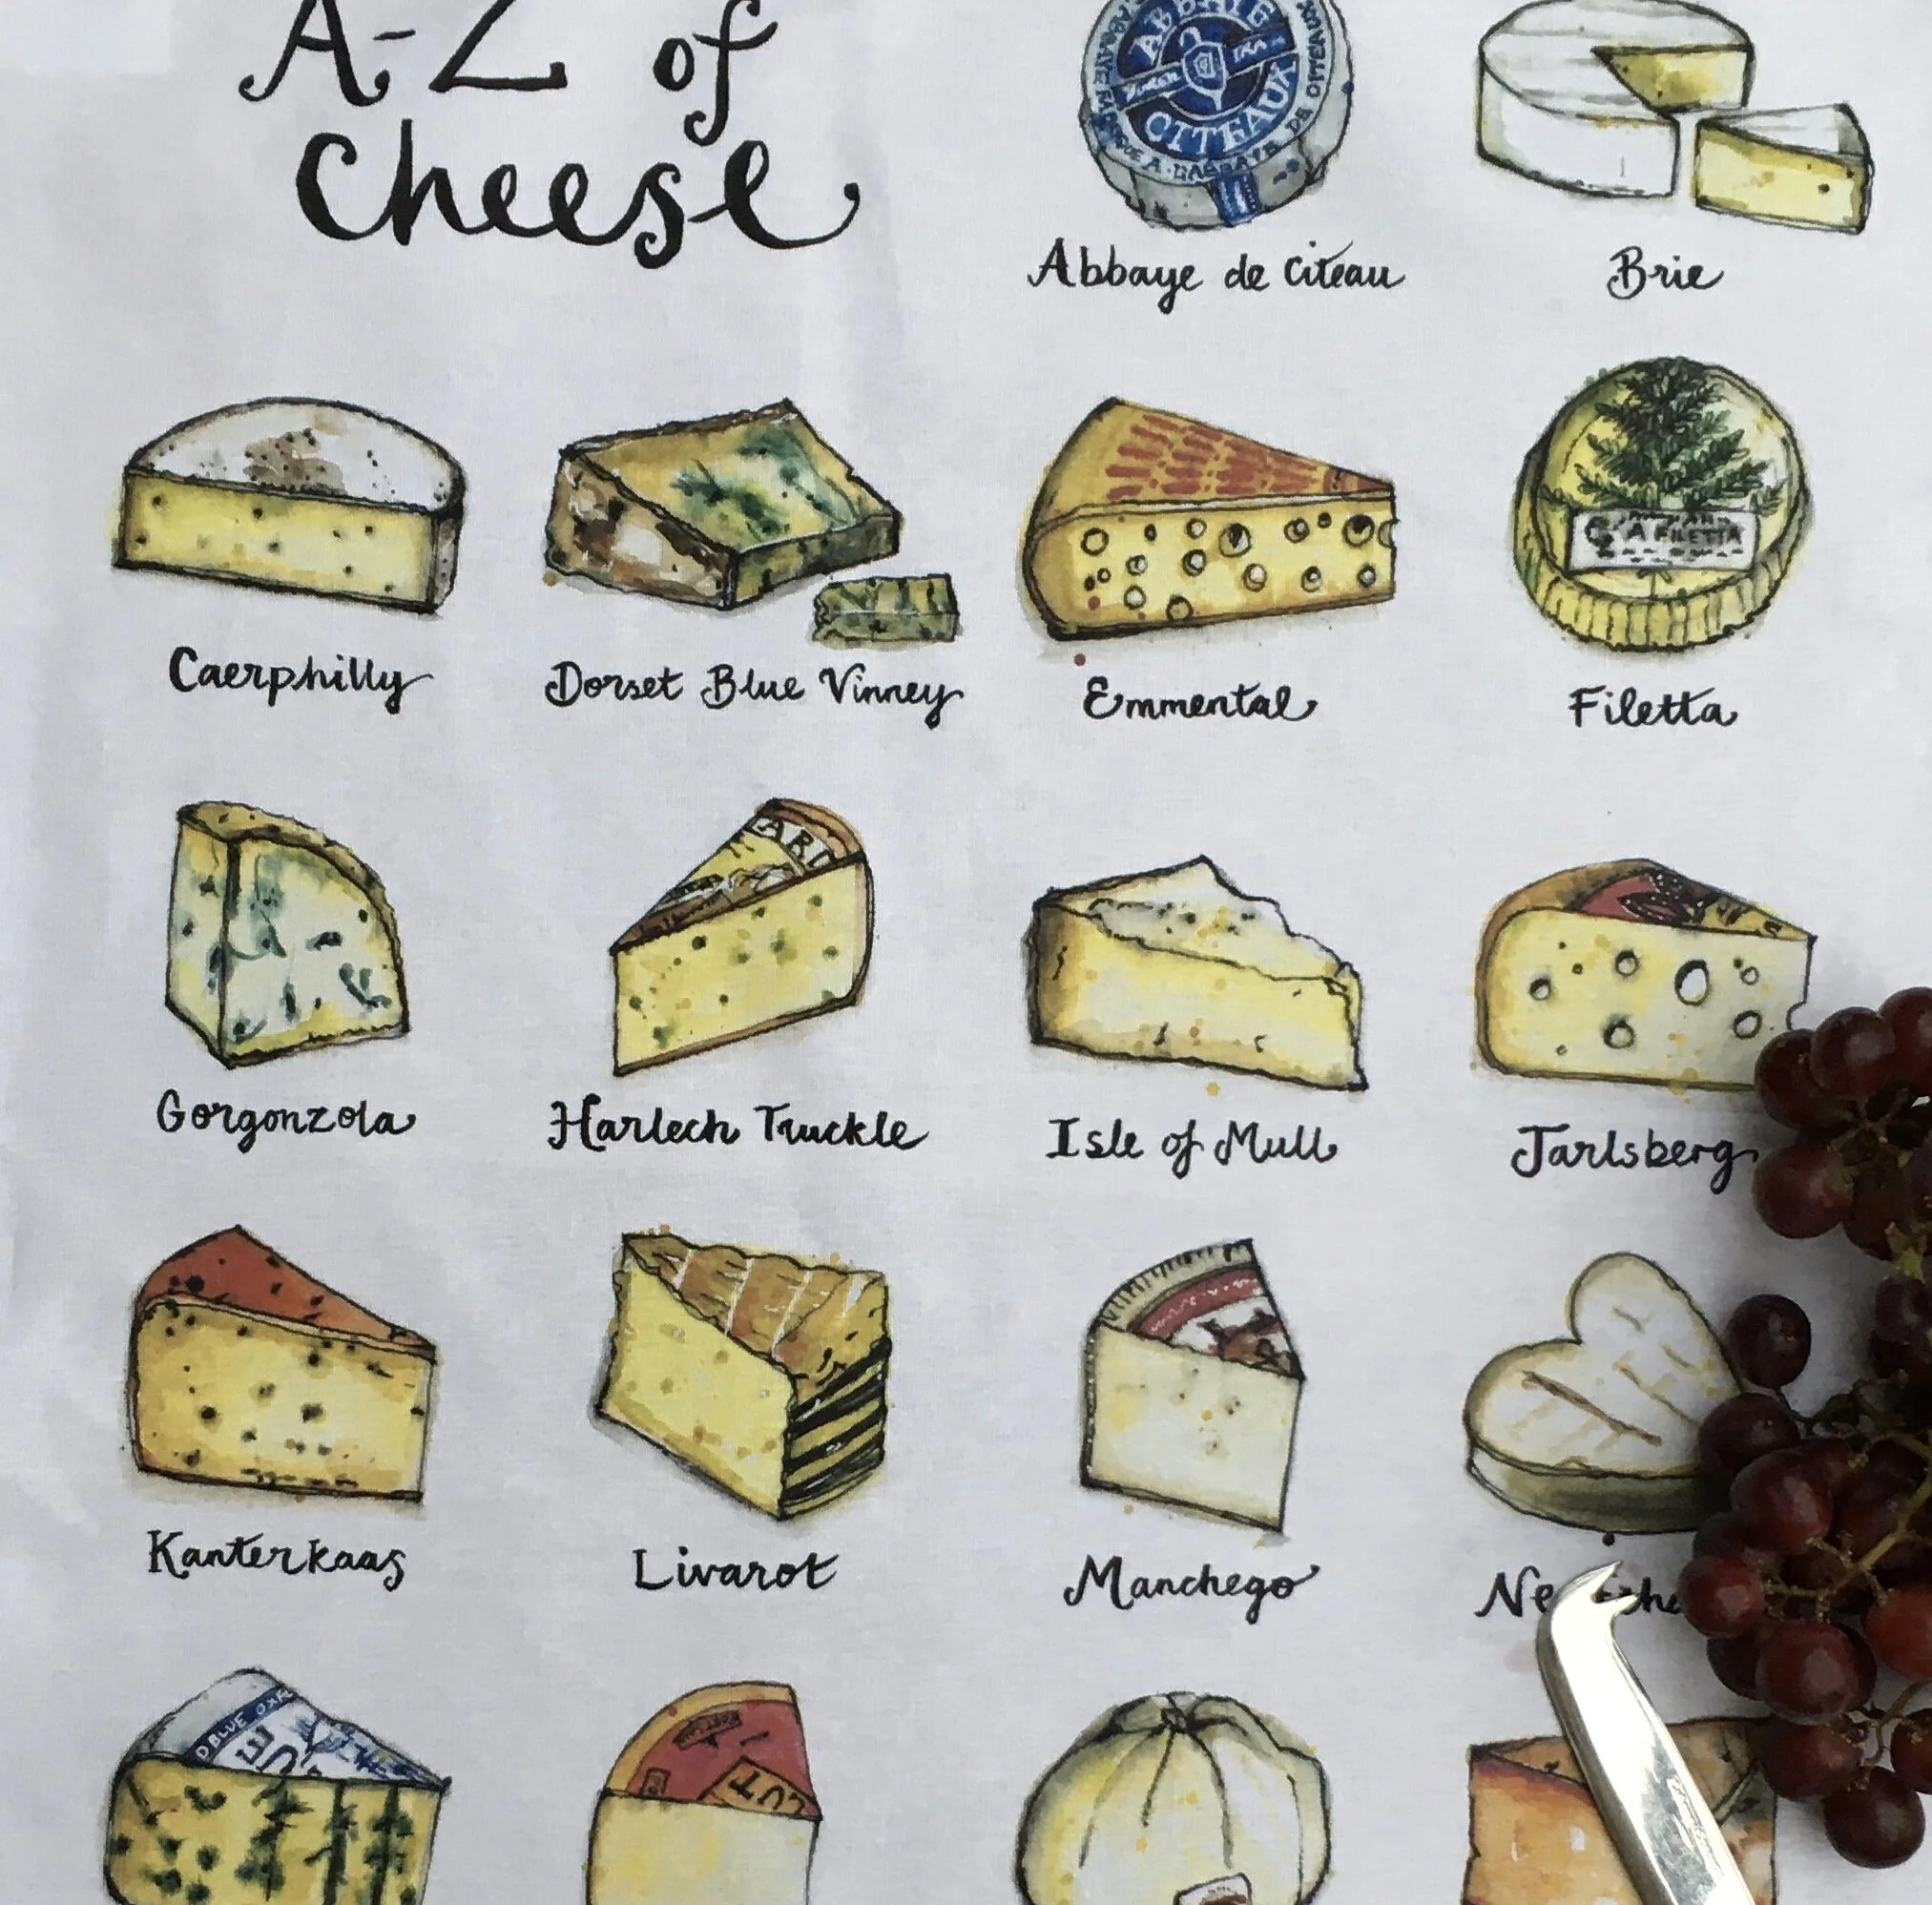 A-Z of
Cheese
ABBAYE
CITEAUX
Abbaye de Citeau
Brie
A FILETTA
Caerphilly
Dorset Blue Vinney
Emmental
Filetta
Gorgonzola
Harlech Truckle
Isle of Mull
Jarlsberg
Kanterkaas
Livarot
Manchego
BLUE